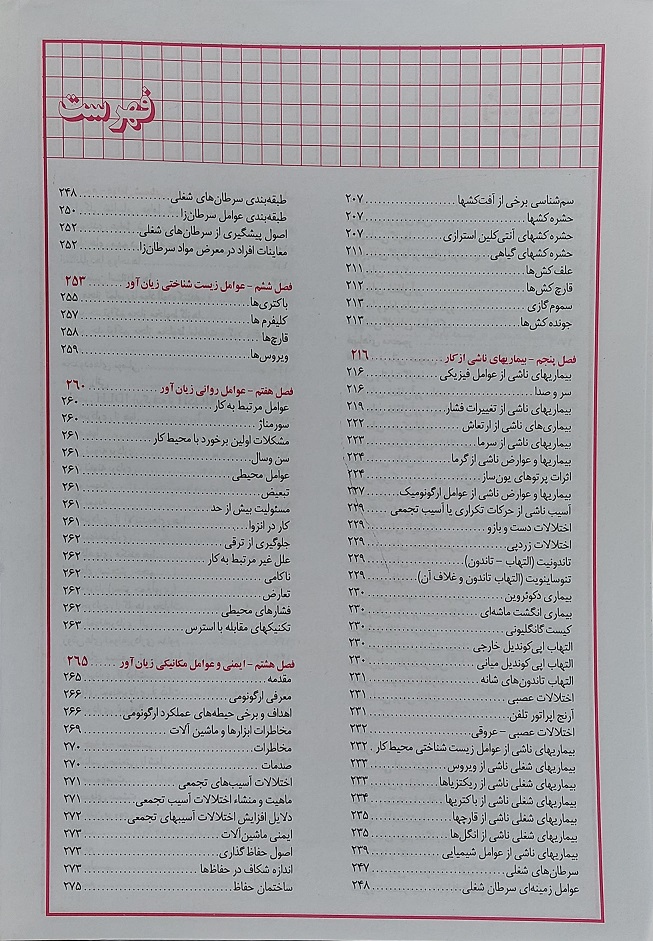 فهرست
سم‌شناسی برخی از آفت‌کشها ........ ۲۰۷
حشره کشها ........ ۲۰۷
حشره کشهای آنتی‌کلین استرازی ........ ۲۰۷
حشره کشهای گیاهی ........ ۲۱۱
علف کش‌ها ........ ۲۱۱
قارچ کش‌ها ........ ۲۱۲
سموم گازی ........ ۲۱۳
جونده کش‌ها ........ ۲۱۳
فصل پنجم - بیماریهای ناشی از کار ........ ۲۱۶
بیماریهای ناشی از عوامل فیزیکی ........ ۲۱۶
سر و صدا ........ ۲۱۶
بیماریهای ناشی از تغییرات فشار ........ ۲۱۹
بیماری‌های ناشی از ارتعاش ........ ۲۲۲
بیماریهای ناشی از سرما ........ ۲۲۳
بیماریها و عوارض ناشی از گرما ........ ۲۲۴
اثرات پرتوهای یون‌ساز ........ ۲۲۴
بیماریها و عوارض ناشی از عوامل ارگونومیک ........ ۲۲۷
آسیب ناشی از حرکات تکراری یا آسیب تجمعی ........ ۲۲۹
اختلالات دست و بازو ........ ۲۲۹
اختلالات زردپی ........ ۲۲۹
تاندونیت (التهاب - تاندون) ........ ۲۲۹
تنوساینویت (التهاب تاندون و غلاف آن) ........ ۲۲۹
بیماری دکوئروین ........ ۲۳۰
بیماری انگشت ماشه‌ای ........ ۲۳۰
کیست گانگلیونی ........ ۲۳۰
التهاب اپی‌کوندیل خارجی ........ ۲۳۰
التهاب اپی کوندیل میانی ........ ۲۳۰
التهاب تاندون‌های شانه ........ ۲۳۱
اختلالات عصبی ........ ۲۳۱
آرنج اپراتور تلفن ........ ۲۳۱
اختلالات عصبی - عروقی ........ ۲۳۲
بیماریهای ناشی از عوامل زیست شناختی محیط کار . ۲۳۲
بیماریهای شغلی ناشی از ویروس ........ ۲۳۳
بیماریهای شغلی ناشی از ریکتزیاها ........ ۲۳۳
بیماریهای شغلی ناشی از باکتریها ........ ۲۳۴
بیماریهای شغلی ناشی از قارچها ........ ۲۳۵
بیماریهای شغلی ناشی از انگل‌ها ........ ۲۳۵
بیماریهای ناشی از عوامل شیمیایی ........ ۲۳۹
سرطان‌های شغلی ........ ۲۴۷
عوامل زمینه‌ای سرطان شغلی ........ ۲۴۸
طبقه‌بندی سرطان‌های شغلی ........ ۲۴۸
طبقه‌بندی عوامل سرطان‌زا ........ ۲۵۰
اصول پیشگیری از سرطان‌های شغلی ........ ۲۵۲
معاینات افراد در معرض مواد سرطان‌زا ........ ۲۵۲
فصل ششم - عوامل زیست شناختی زیان آور ........ ۲۵۳
باکتری‌ها ........ ۲۵۵
کلیفرم ها ........ ۲۵۷
قارچ‌ها ........ ۲۵۸
ویروس‌ها ........ ۲۵۹
فصل هفتم - عوامل روانی زیان آور ........ ۲۶۰
عوامل مرتبط به کار ........ ۲۶۰
سورمناژ ........ ۲۶۰
مشکلات اولین برخورد با محیط کار ........ ۲۶۱
سن و سال ........ ۲۶۱
عوامل محیطی ........ ۲۶۱
تبعیض ........ ۲۶۱
مسئولیت بیش از حد ........ ۲۶۱
کار در انزوا ........ ۲۶۱
جلوگیری از ترقی ........ ۲۶۲
علل غیر مرتبط به کار ........ ۲۶۲
ناکامی ........ ۲۶۲
تعارض ........ ۲۶۲
فشارهای محیطی ........ ۲۶۲
تکنیکهای مقابله با استرس ........ ۲۶۳
فصل هشتم - ایمنی و عوامل مکانیکی زیان آور ...... ۲۶۵
مقدمه ........ ۲۶۵
معرفی ارگونومی ........ ۲۶۶
اهداف و برخی حیطه‌های عملکرد ارگونومی ........ ۲۶۶
مخاطرات ابزارها و ماشین آلات ........ ۲۶۹
مخاطرات ........ ۲۷۰
صدمات ........ ۲۷۰
اختلالات آسیب‌های تجمعی ........ ۲۷۱
ماهیت و منشاء اختلالات آسیب تجمعی ........ ۲۷۱
دلایل افزایش اختلالات آسیبهای تجمعی ........ ۲۷۲
ایمنی ماشین‌آلات ........ ۲۷۳
اصول حفاظ گذاری ........ ۲۷۳
اندازه شکاف در حفاظها ........ ۲۷۳
ساختمان حفاظ ........ ۲۷۵